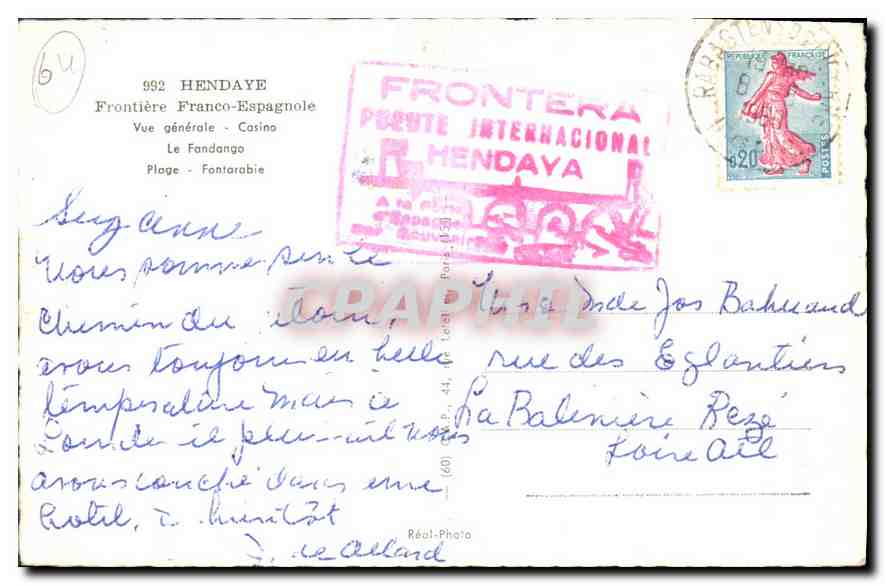 64
992 HENDAYE
Frontière Franco-Espagnole
Vue générale - Casino
Le Fandango
Plage - Fontarabie
FRONTERA
PUENTE INTERNACIONAL
HENDAYA
REPUBLIQUE FRANÇAISE
0,20
POSTES
Suzanne
Nous sommes sur le
chemin du
avons toujours eu belle
température mais à
Lourde il pleuvait nous
avons couché dans une
hotel, à bientôt
J. Le Allard
Mr et Mde Jos Bahuaud
rue des Eglantiers
La Balinière Rezé
Loire Atl
(60) 44, rue Paris (15e)
Réal-Photo
CPAPHIL